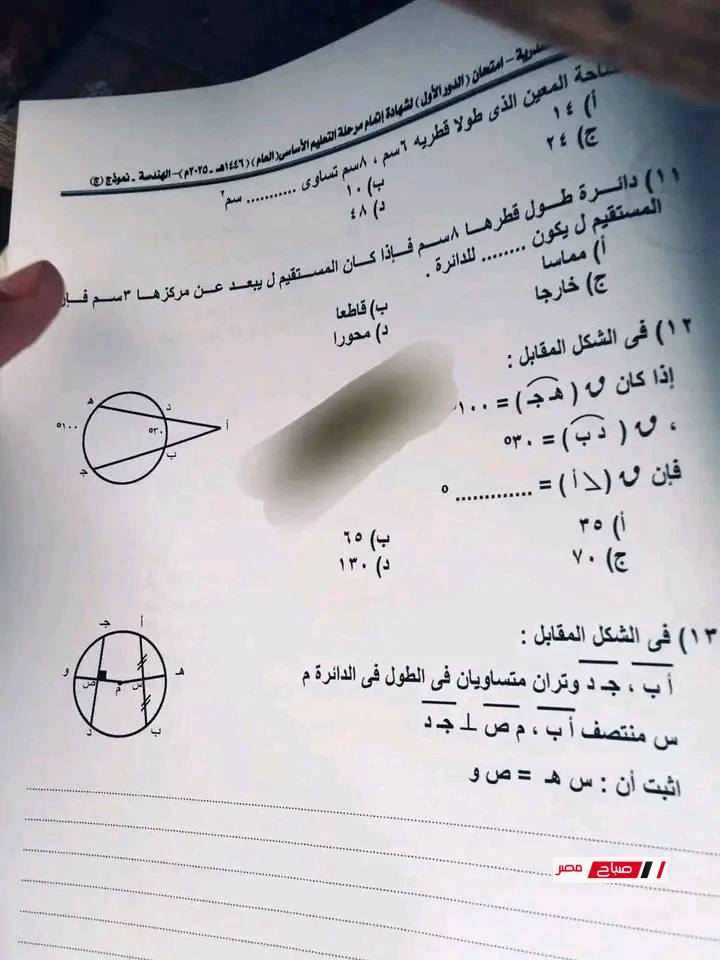 ندرية – امتحان (الدور الأول) لشهادة إتمام مرحلة التعليم الأساسى (العام) (١٤٤٦هـ - ٢٠٢٥م) – الهندسة - نموذج (ج)
احة المعين الذى طولا قطريه ٦سم ، ٨سم تساوى ........... سم٢
أ) ١٤
ب) ١٠
ج) ٢٤
د) ٤٨
١١) دائرة طول قطرها ٨سم فإذا كان المستقيم ل يبعد عن مركزها ٣سم فإن
المستقيم ل يكون ........ للدائرة .
أ) مماسا
ب) قاطعا
ج) خارجا
د) محورا
١٢) فى الشكل المقابل :
إذا كان ن (هـ جـ) = ١٠٠
، ن (د ب) = ٣٠°
فإن ن (ﮮ أ) = ............ °
أ) ٣٥
ب) ٦٥
ج) ٧٠
د) ١٣٠
هـ
د
١٠٠°
٣٠°
أ
ب
جـ
١٣) فى الشكل المقابل :
أ ب ، جـ د وتران متساويان فى الطول فى الدائرة م
س منتصف أ ب ، م ص ⊥ جـ د
اثبت أن : س هـ = ص و
جـ
أ
و
ص
م
س
هـ
د
ب
صباح مصر